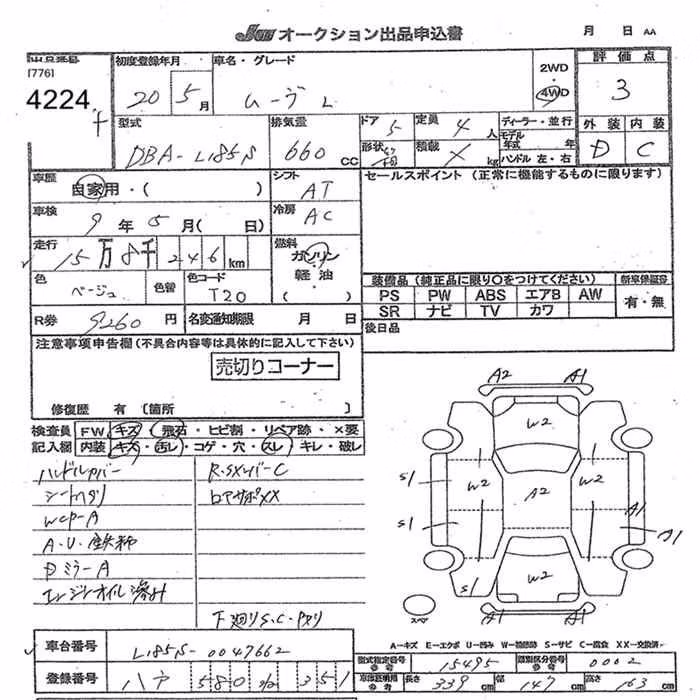 JW オークション出品申込書 月 日 AA
出品番号
[776]
4224
初度登録年月
20 5月
車名・グレード
ムーヴ L
2WD
4WD
評価点
3
外装 内装
D C
型式
DBA-L185S
排気量
660 CC
ドア 5
形状
定員 4 人
積載 X kg
ディーラー・並行
モデル年式 年
ハンドル 左・右
車歴
自家用・( )
シフト
AT
車検
9年 5月( 日)
冷房
AC
走行
15万8千246km
燃料
ガソリン
軽油
( )
色
ベージュ
色替
色コード
T20
R券 9260円
名変通知期限 月 日
セールスポイント (正常に機能するものに限ります)
装備品 (純正品に限り○をつけてください)
PS PW ABS エアB AW
SR ナビ TV カワ
新車保証書
有・無
後日品
注意事項申告欄(不具合内容等は具体的に記入して下さい)
売切りコーナー
修復歴 有 〔箇所 〕
検査員 FW キズ・飛石・ヒビ割・リペア跡・×要
記入欄 内装 キズ・汚レ・コゲ・穴・スレ・キレ・破レ
ハンドルカバー
シートヘタリ
WCP-A
A・U・鉄粉
Dミラー A
エンジンオイル滲ミ
R.SXリバーC
ロアサポXX
下廻りS.C・Pメクリ
A2 A1
W2
S1 W2 A2 W2 A1
S1 A1
S1 W2
A1 A1
スペア
A-キズ E-エクボ U-凹み W-補修跡 S-サビ C-腐食 XX-交換済
車台番号
L185S-0047662
登録番号
580 351
型式指定番号
参考
15495
類別区分番号
参考
0002
車庫証明用
参考
長さ 339 cm
幅 147 cm
高さ 163 cm